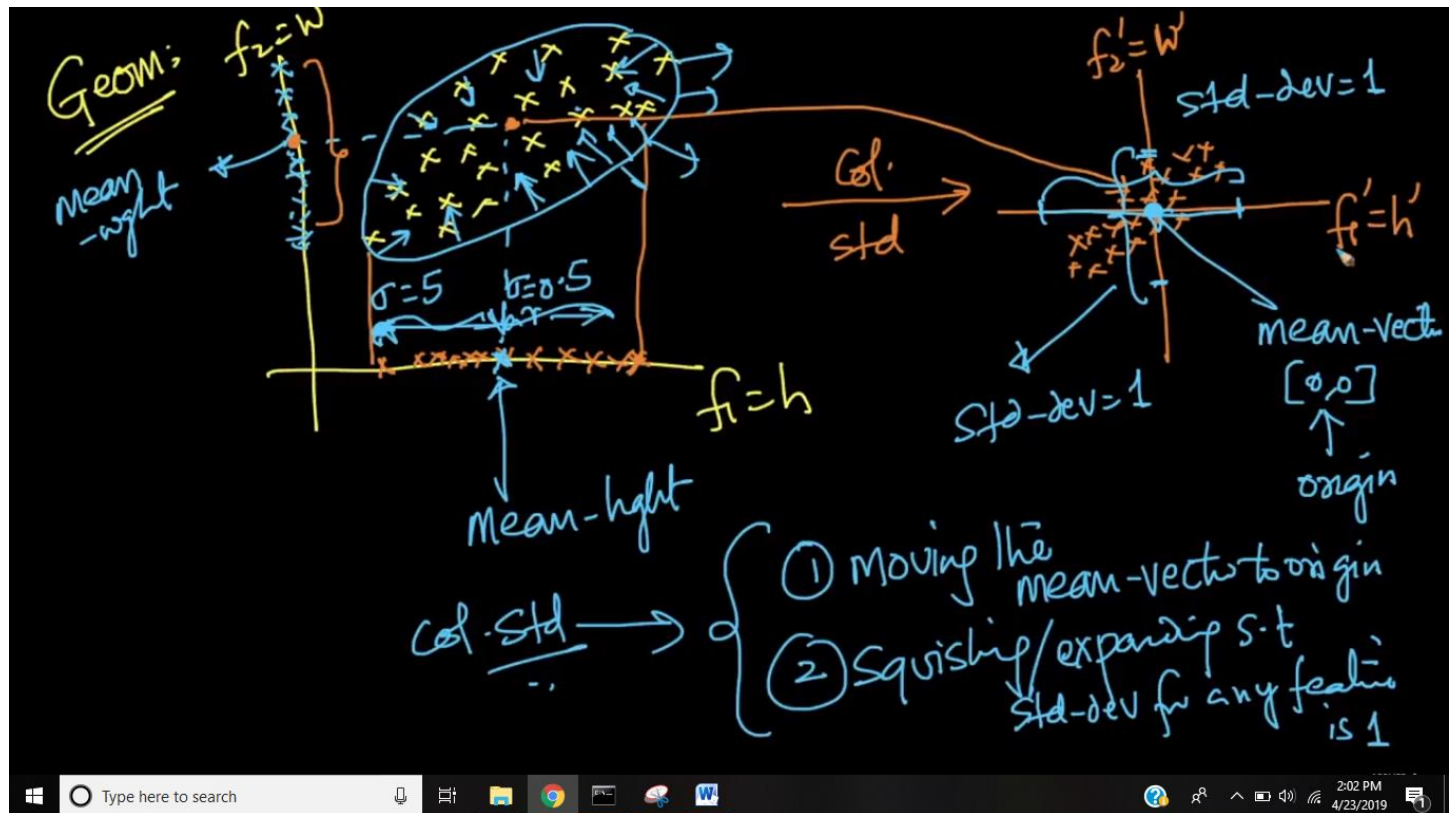 Geom:
f₂=W
mean
-wght
σ=5
σ=0.5
f₁=h
mean-hght
Col.
std
f₂'=W'
std-dev=1
f₁'=h'
mean-vect
[0,0]
origin
std-dev=1
Col.Std
① Moving the
mean-vector to origin
② Squishing/expanding s.t
std-dev for any feature
is 1
Type here to search
2:02 PM
4/23/2019
1